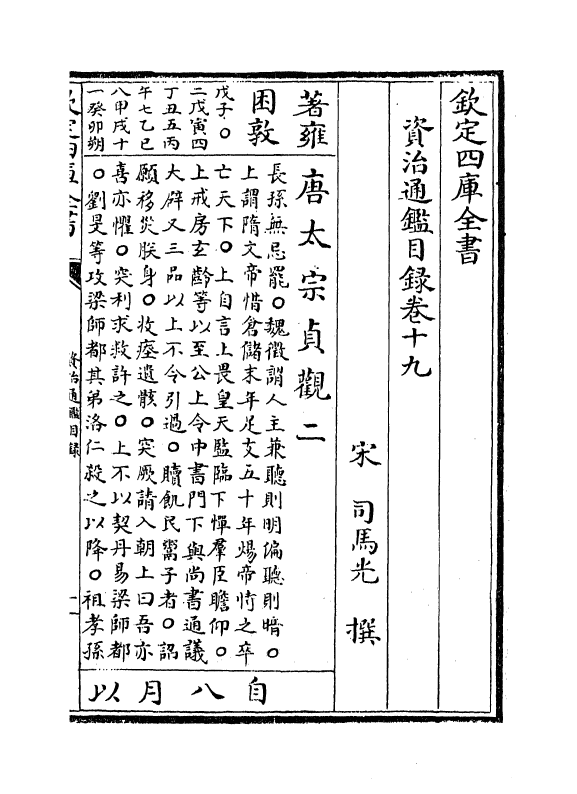 欽定四庫全書
資治通鑑目録卷十九
宋　司馬光　撰
著雍
困敦
戊子〇
二戊寅四
丁丑五丙
午七乙巳
八甲戌十
一癸卯朔
唐太宗貞觀二
長孫無忌罷〇魏徴謂人主兼聽則明偏聽則暗〇
上謂隋文帝惜倉儲末年足支五十年煬帝恃之卒
亡天下〇上自言上畏皇天監臨下憚羣臣瞻仰〇
上戒房玄齡等以至公上令中書門下與尚書通議
大辟又三品以上不令引過〇贖飢民鬻子者〇詔
願移災朕身〇收瘞遺骸〇突厥請入朝上曰吾亦
喜亦懼〇突利求救許之〇上不以契丹易梁師都
〇劉旻等攻梁師都其弟洛仁殺之以降〇祖孝孫
自八月以
資治通鑑目録